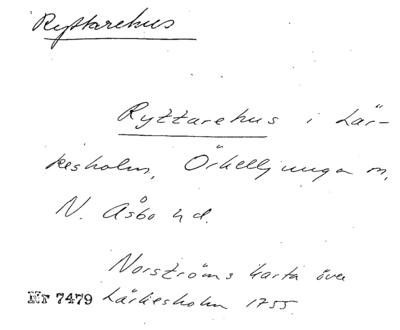 Ryttarehus
Ryttarehus i Lär-
kesholm, Örkelljunga sn,
N. Åsbo hd.
Norströms karta över
Nr 7479 Lärkesholm 1755.